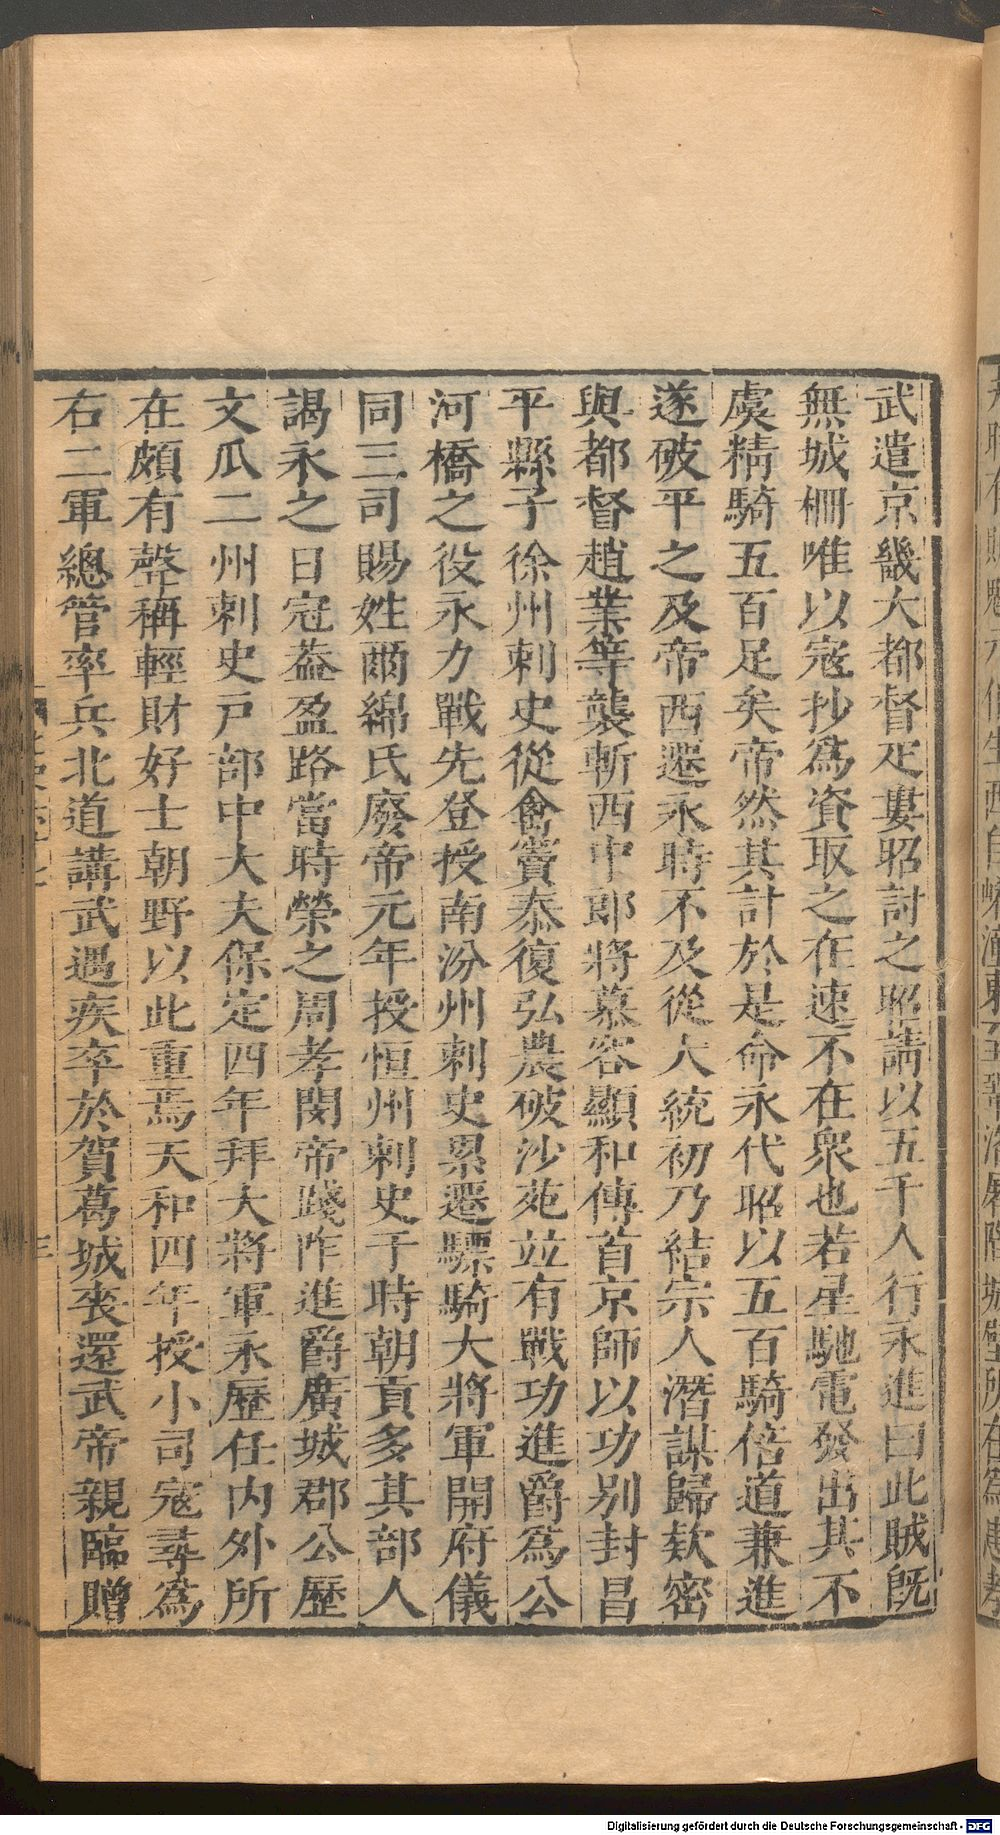 武遣京畿大都督疋婁昭討之昭請以五千人行永進曰此賊旣
無城柵唯以寇抄爲資取之在速不在眾也若星馳電發出其不
虞精騎五百足矣帝然其計於是命永代昭以五百騎倍道兼進
遂破平之及帝西遷永時不及從大統初乃結宗人潛謀歸欵密
與都督趙業等襲斬西中郎將慕容顯和傳首京師以功別封昌
平縣子徐州刺史從禽竇泰復弘農破沙苑竝有戰功進爵爲公
河橋之役永力戰先登授南汾州刺史累遷驃騎大將軍開府儀
同三司賜姓爾綿氏廢帝元年授恒州刺史于時朝貢多其部人
謁永之日冠葢盈路當時榮之周孝閔帝踐阼進爵廣城郡公歷
文瓜二州刺史戶部中大夫保定四年拜大將軍永歷任內外所
在頗有聲稱輕財好士朝野以此重焉天和四年授小司寇尋爲
右二軍總管率兵北道講武遇疾卒於賀葛城喪還武帝親臨贈
三
Digitalisierung gefördert durch die Deutsche Forschungsgemeinschaft - DFG